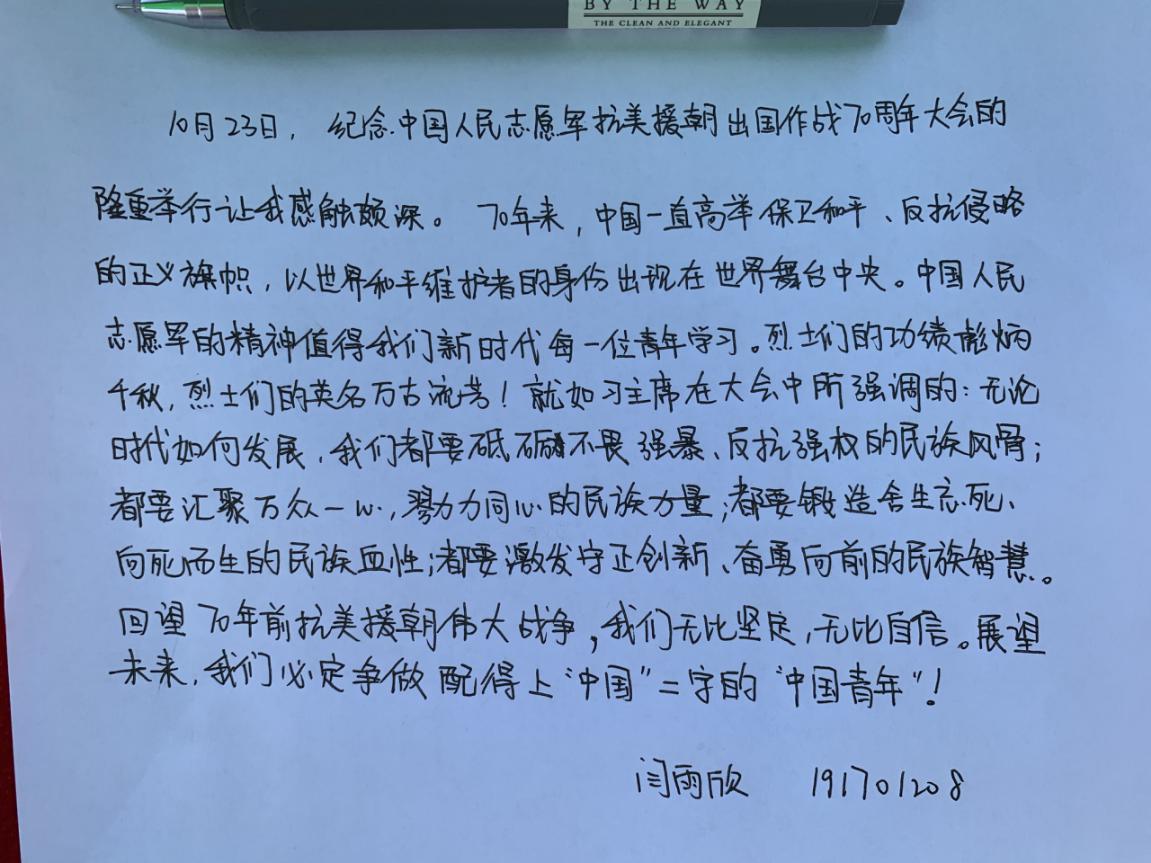 BY THE WAY
THE CLEAN AND ELEGANT
10月23日，纪念中国人民志愿军抗美援朝出国作战70周年大会的
隆重举行让我感触颇深。70年来，中国一直高举保卫和平、反抗侵略
的正义旗帜，以世界和平维护者的身份出现在世界舞台中央。中国人民
志愿军的精神值得我们新时代每一位青年学习。烈士们的功绩彪炳
千秋，烈士们的英名万古流芳！就如习主席在大会中所强调的：无论
时代如何发展，我们都要砥砺不畏强暴、反抗强权的民族风骨；
都要汇聚万众一心，勠力同心的民族力量；都要锻造舍生忘死、
向死而生的民族血性；都要激发守正创新、奋勇向前的民族智慧。
回望70年前抗美援朝伟大战争，我们无比坚定，无比自信。展望
未来，我们必定争做配得上“中国”二字的“中国青年”！
闫雨欣 191701208